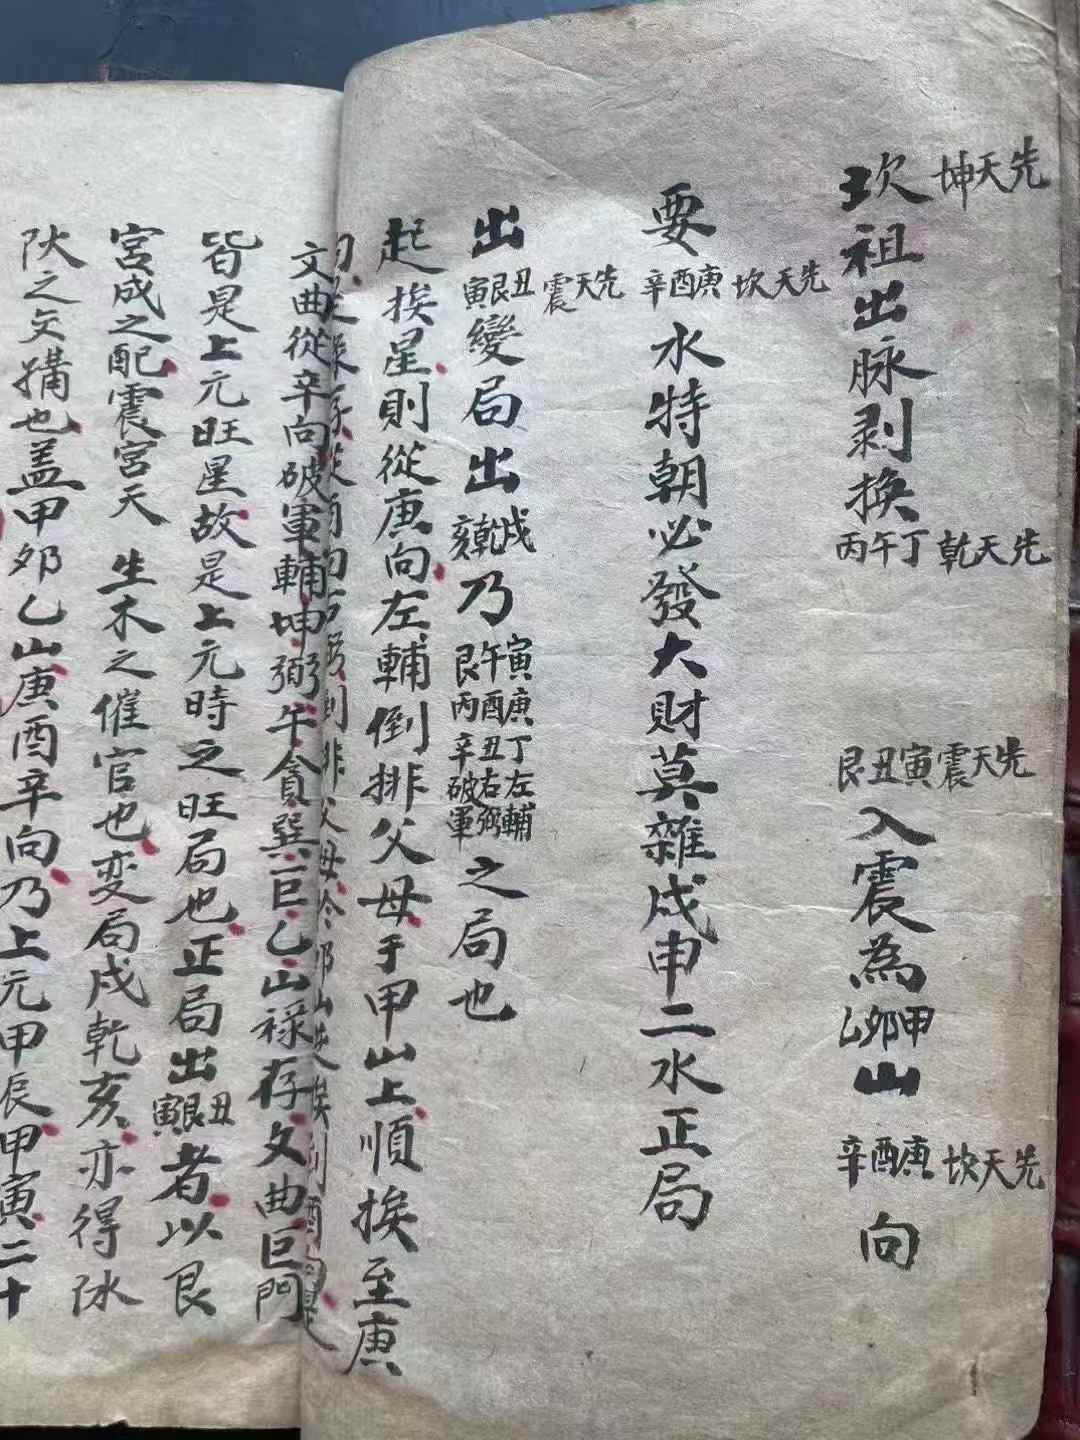 坎祖出脉剥换 先天坤 丁午丙 先天乾 先天震 寅丑艮 入震為甲卯乙山 先天坎 庚酉辛 向
要 先天坎 庚酉辛 水特朝必發大財莫雜戍申二水正局
出 先天震 丑艮寅 變局出 戍乾亥 乃 寅午艮 庚酉丙 丁丑辛 左輔右弼破軍 之局也
起挨星則從庚向左輔倒排父母于甲山上順挨至庚
文曲從辛向破軍輔坤弼午貪巽巨乙山祿存文曲巨門
皆是上元旺星故是上元時之旺局也正局出丑艮寅者以艮
宮成之配震宮天 生木之催官也变局戍乾亥亦得
之爻搆也盖甲夘乙山庚酉辛向乃上元甲辰甲寅二十